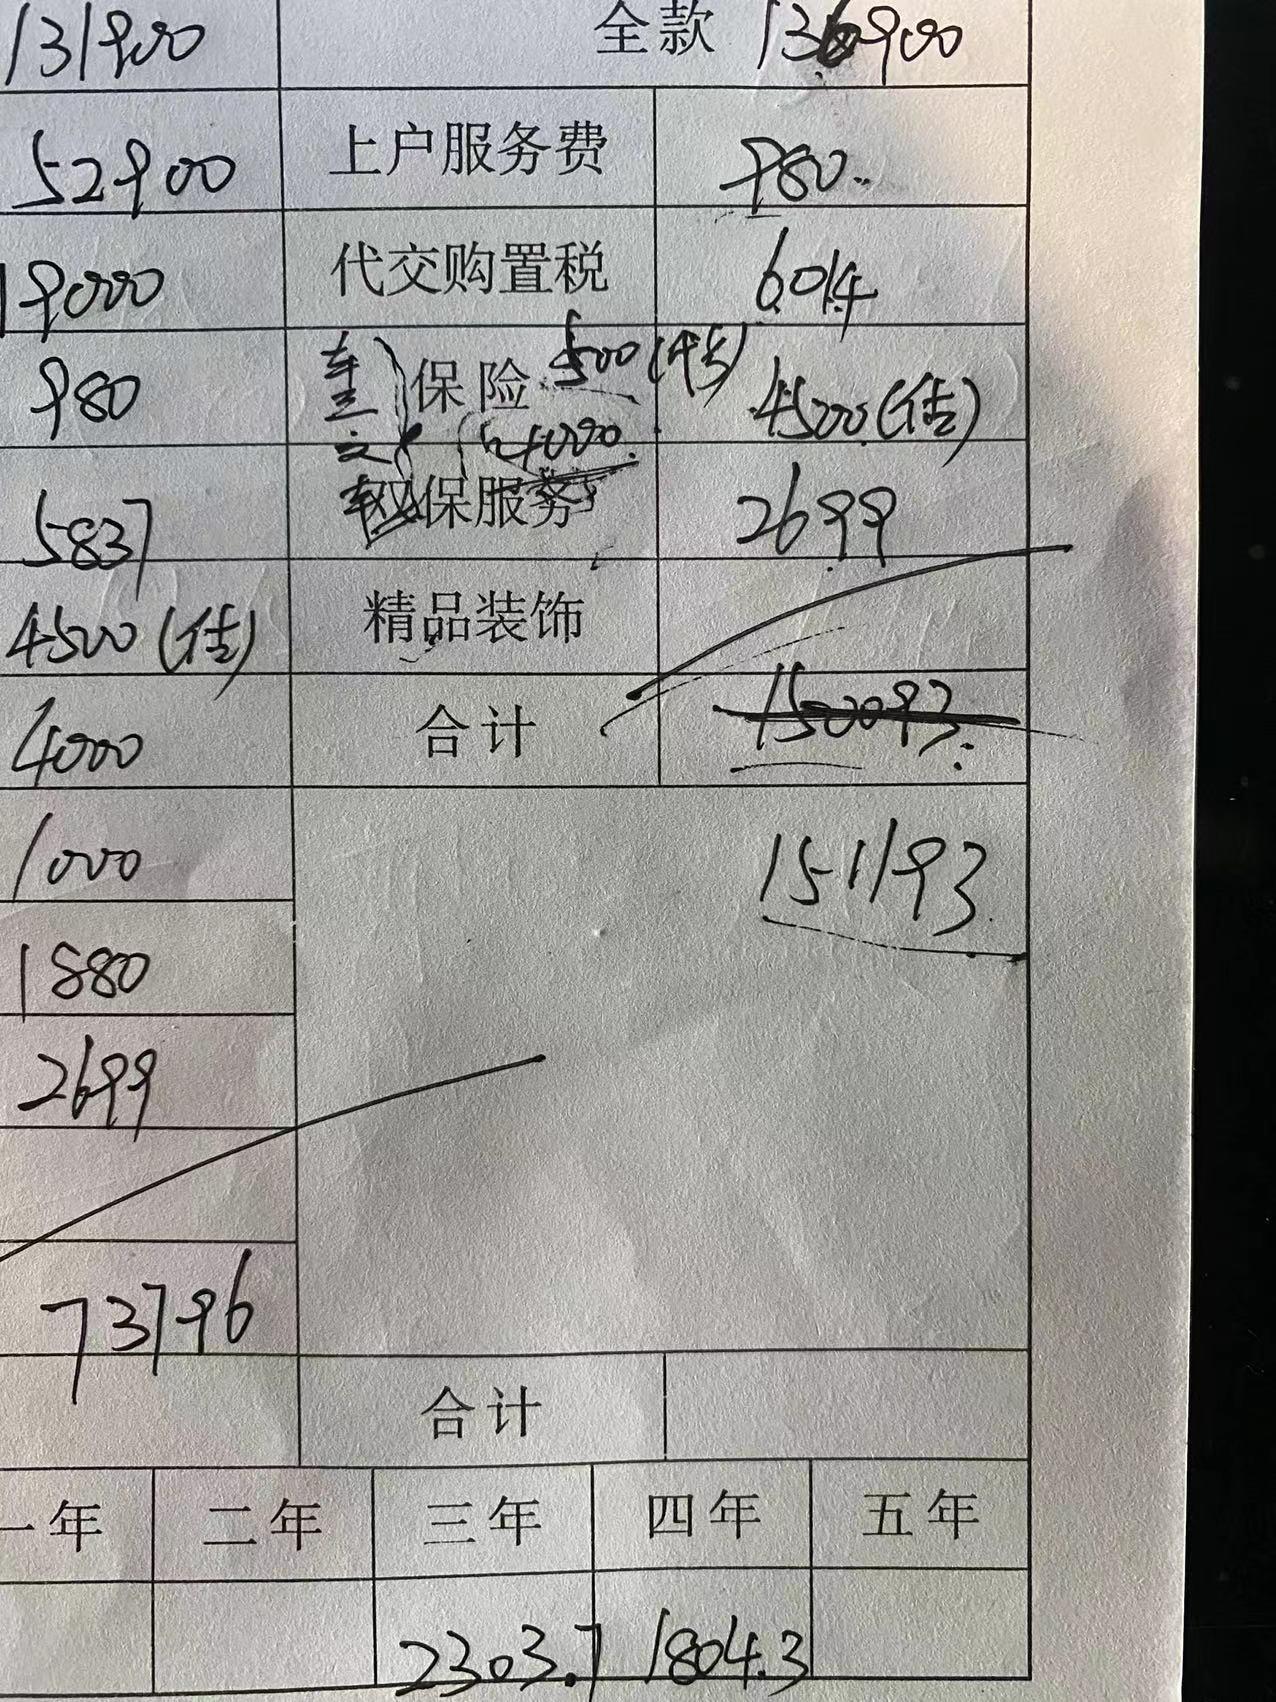 131900 全款 136900
52900 上户服务费 980
19000 代交购置税 6014
980 保险 500(交强) 4500(估)
4000
5837 双保服务 2699
4500(估) 精品装饰
4000 合计 150093
1000 151193
1880
2699
73796
合计
一年 二年 三年 四年 五年
2303.7 1804.3